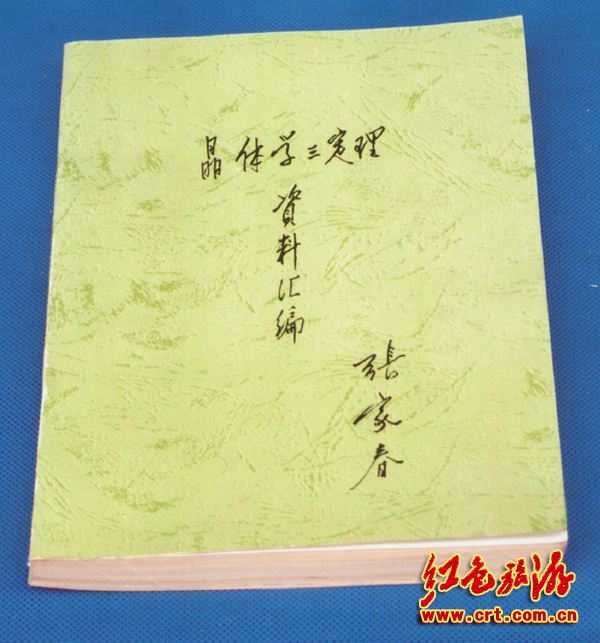 晶体学三定理
資料汇编
張家春
红色旅游
www.crt.com.cn